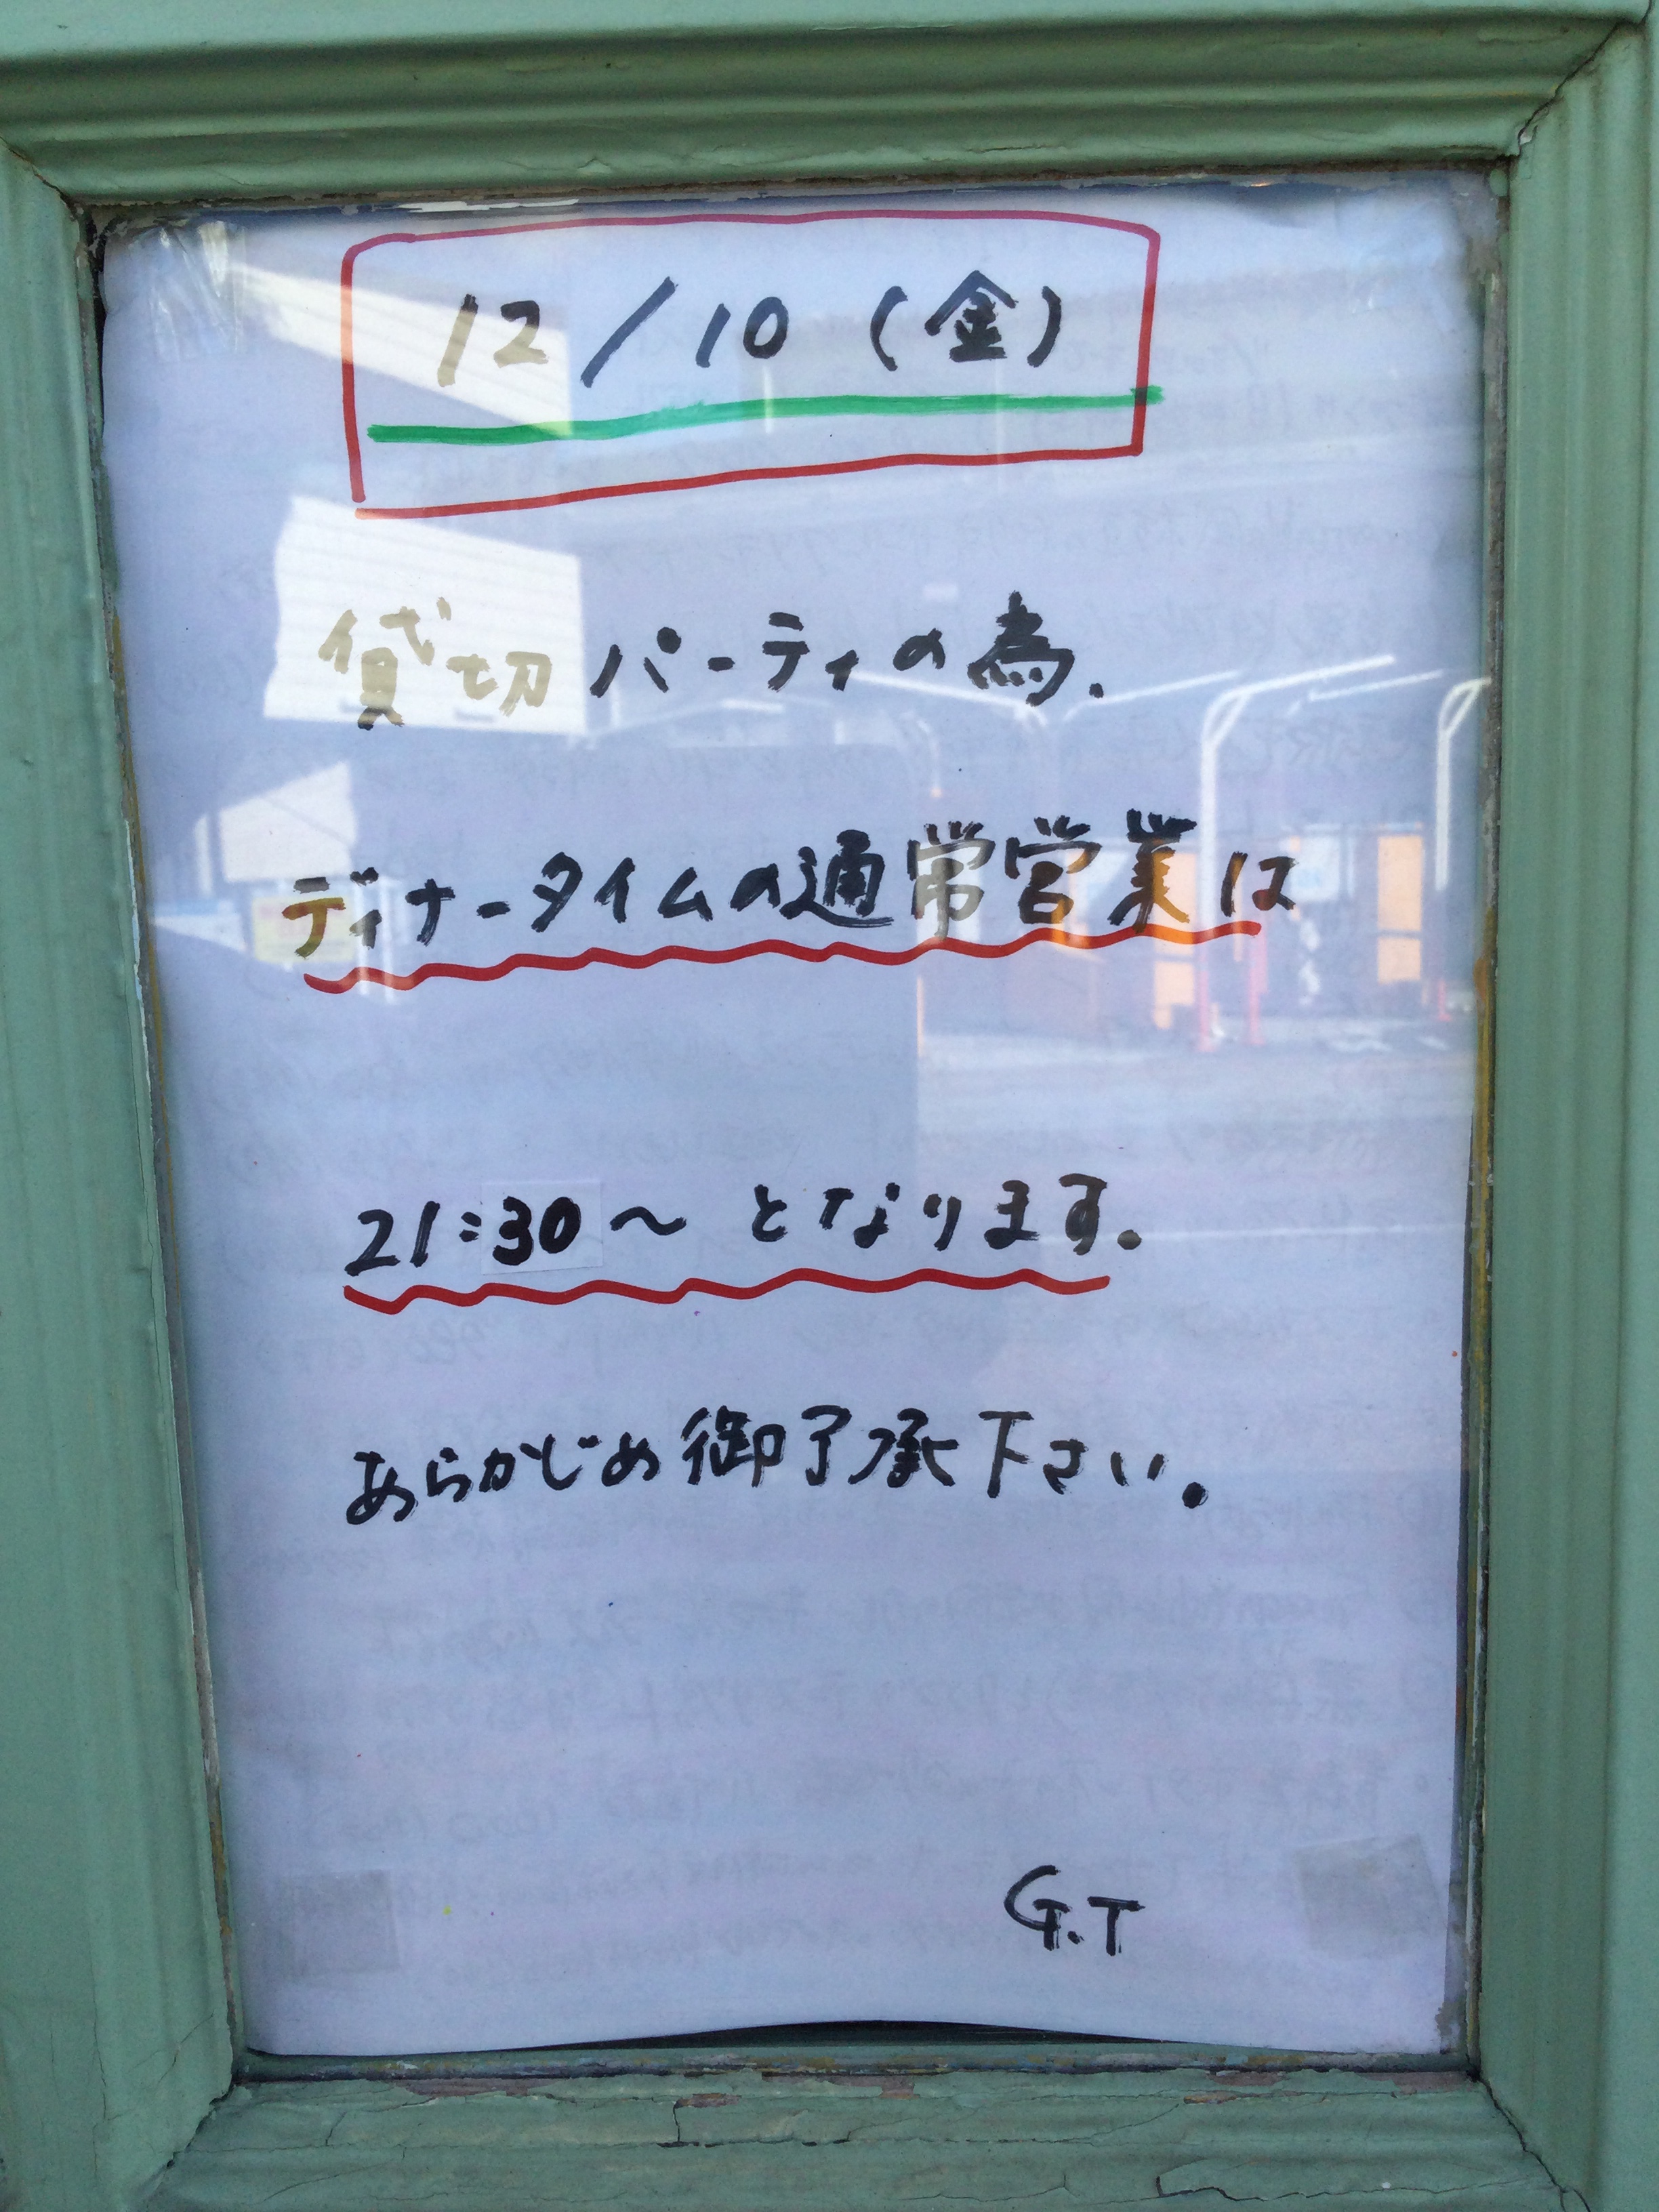 12/10(金)
貸切パーティの為.
ディナータイムの通常営業は
21:30～ となります.
あらかじめ御了承下さい.
G.T